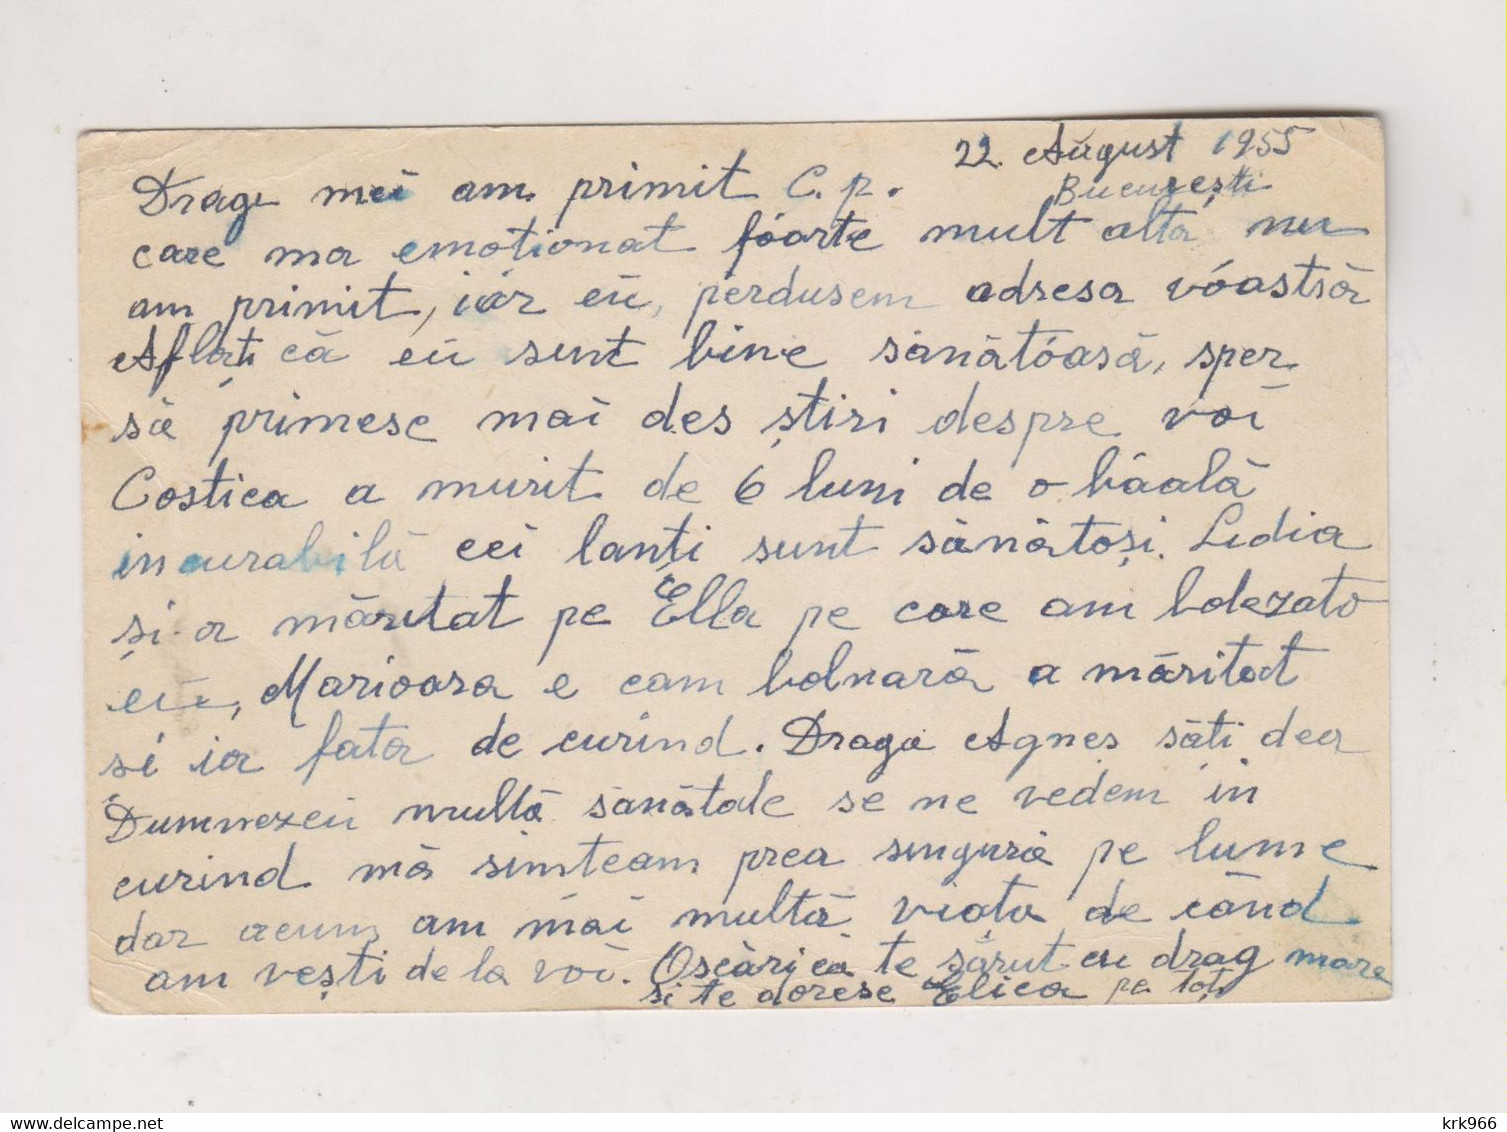 22. August 1955
București
Dragii mei am primit C.p.
care ma emoționat foarte mult alta nu
am primit, iar eu, perdusem adresa voastră
Aflați că eu sunt bine sănătoasă, sper
să primesc mai des știri despre voi
Costica a murit de 6 luni de o bóală
incurabilă cei lanți sunt sănătoși. Lidia
și-a măritat pe Ella pe care am botezato
eu, Marioara e cam bolnavă a măritat
si ia fata de curind. Draga Agnes săti dea
Dumnezeu multă sănătate se ne vedem in
curind mă simțeam prea singură pe lume
dar acum am mai multă viața de când
am vești de la voi. Oscărică te sărut cu drag mare
si te doresc Elica pe toți
krk966